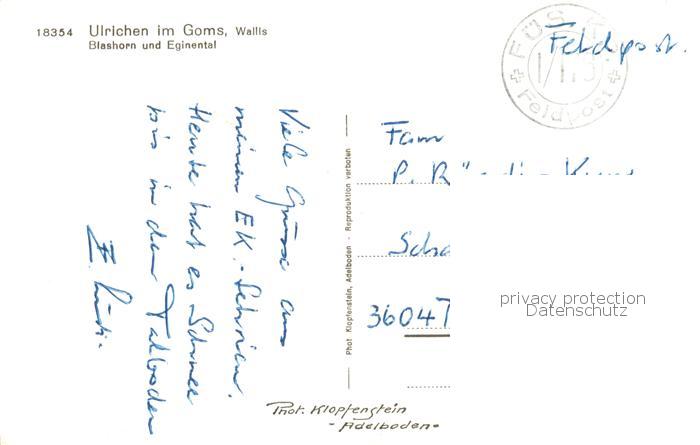 18354 Ulrichen im Goms, Wallis
Blashorn und Eginental
FÜS
Feldpost
Feldpost.
Viele Grüsse aus
meinem EK.
Heute hat es Schnee
bis in den Talboden
Fam
P.
Scha
3604 T
privacy protection
Datenschutz
Phot. Klopfenstein, Adelboden - Reproduktion verboten
Phot. Klopfenstein
- Adelboden -